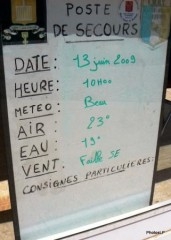 POSTE
DE SECOURS
DATE: 13 juin 2009
HEURE: 10H00
METEO: Beau
AIR: 23°
EAU: 19°
VENT: Faible SE
CONSIGNES PARTICULIERES: